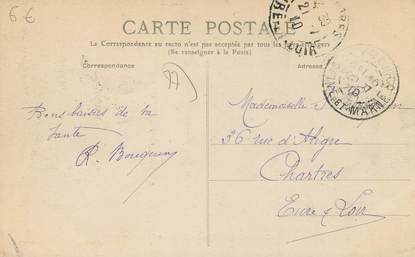 6€
CARTE POSTALE
La Correspondance au recto n'est pas acceptée par tous les
(Se renseigner à la Poste)
Correspondance
Adresse
77
Bons baisers de ta
tante
Mademoiselle
36 rue d'Aligre
Chartres
Eure & Loir
ET MARNE